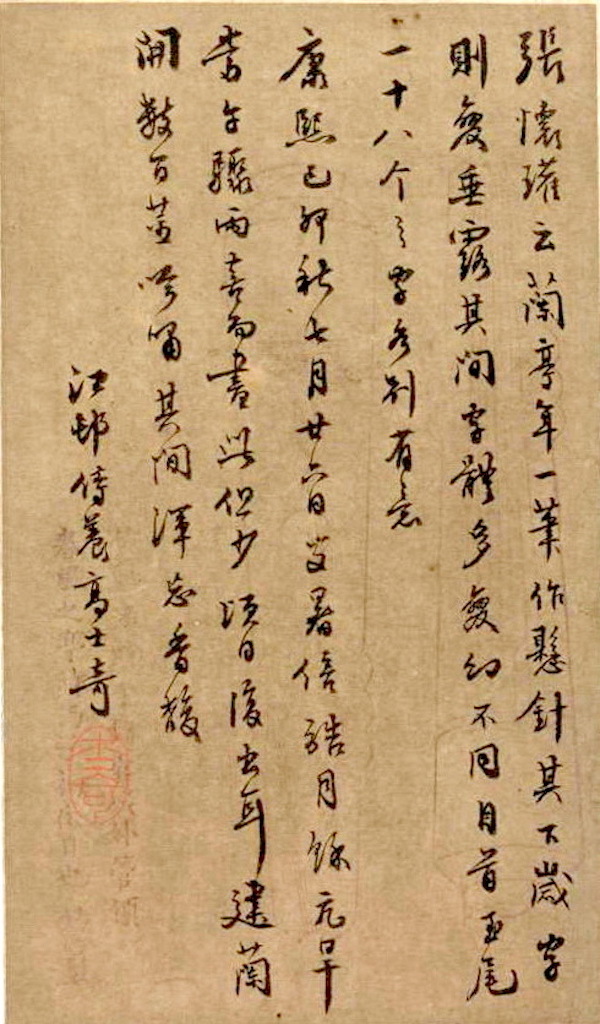 張懷瓘云蘭亭年一筆作懸針其下歲字
則變垂露其間字體多變幻不同自首至尾
一十八个之字各別有意
康熙己卯秋七月廿六日暑倍酷月餘亢旱
當午驟雨喜而書此但少頃日復出耳建蘭
開數百莖吟嘯其間渾忘香馥
江邨傅養高士奇